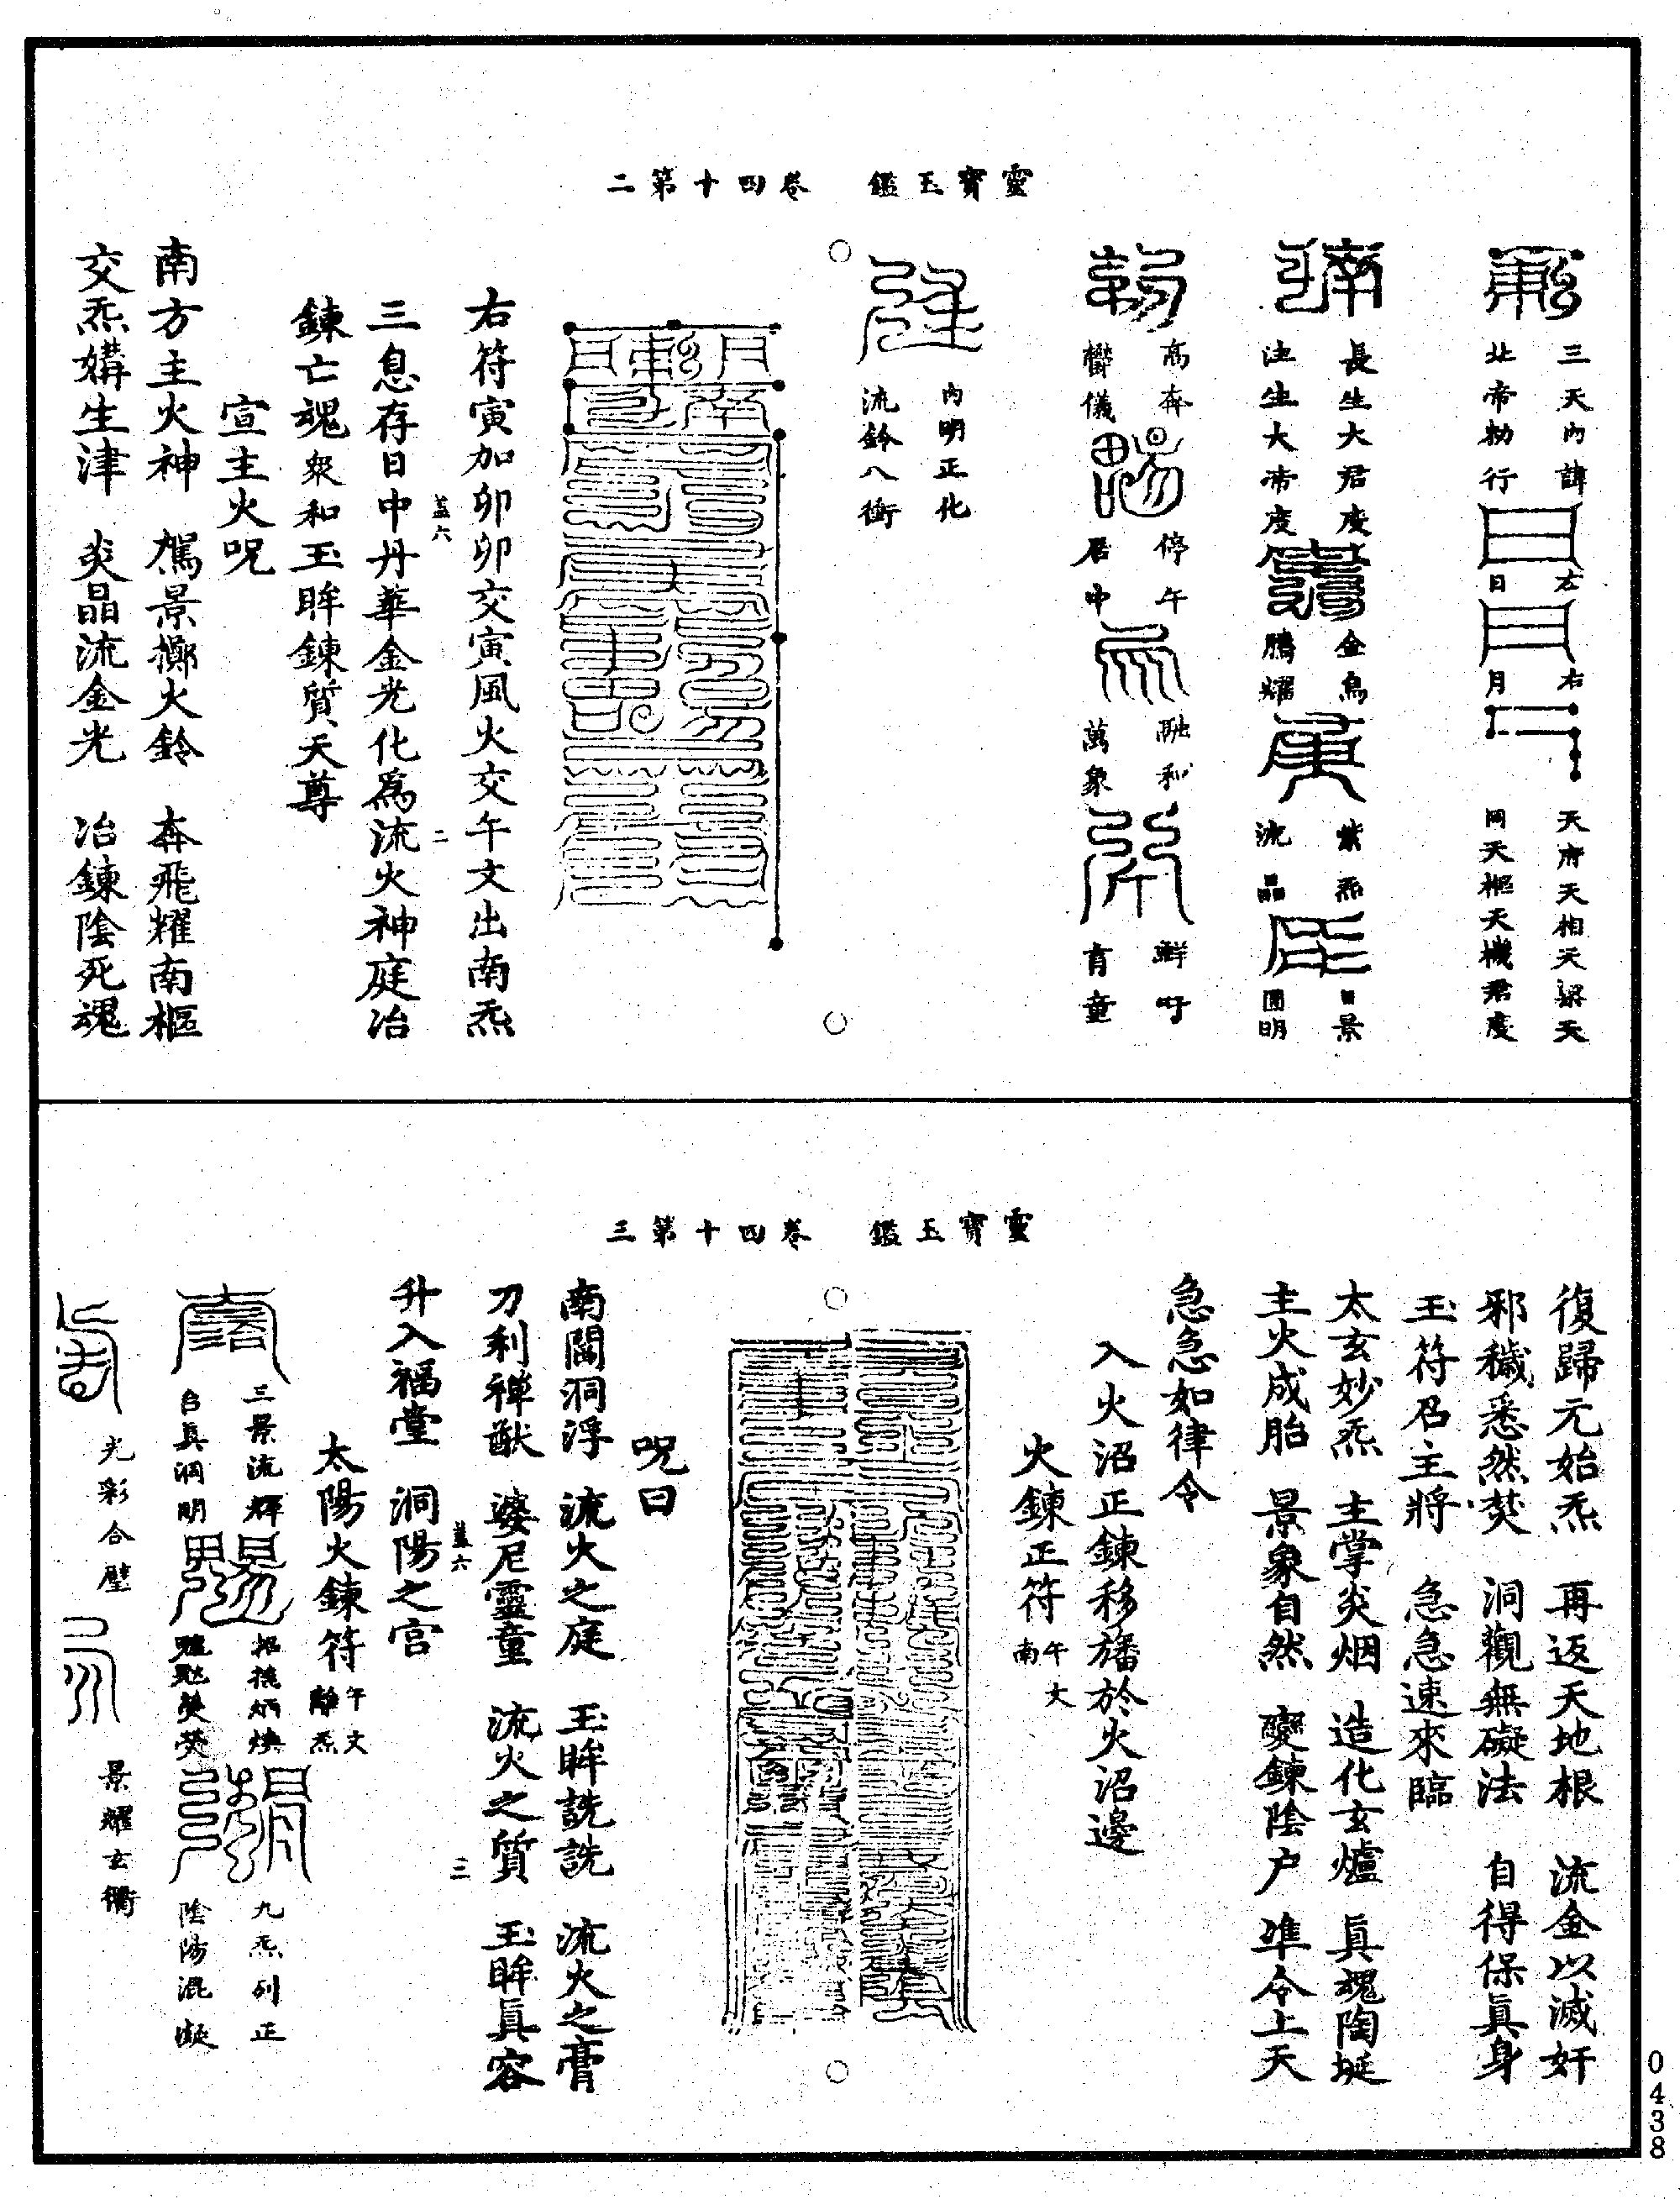 靈寶玉鑑　卷四十第二
三天內諱
北帝勑行
左日
右月
天府天相天梁天
同天樞天機君度
長生大君度
注生大帝度
金烏
鵬耀
紫炁
流晶
日景
圓明
高奔
欝儀
停午
居中
融和
萬象
鮮吁
育童
內明正化
流鈴八衝
右符寅加卯卯交寅風火交午文出南炁
三息存日中丹華金光化爲流火神庭冶
鍊亡魂衆和玉眸鍊質天尊
宣主火呪
南方主火神　駕景擲火鈴　奔飛耀南樞
交炁媾生津　炎晶流金光　冶鍊陰死魂
蓋六　二
靈寶玉鑑　卷四十第三
復歸元始炁　再返天地根　流金以滅奸
邪穢悉然焚　洞觀無礙法　自得保眞身
玉符召主將　急急速來臨
太玄妙炁　主掌炎烟　造化玄爐　眞魂陶埏
主火成胎　景象自然　變鍊陰户　準令上天
急急如律令
入火沼正鍊移旛於火沼邊
火鍊正符午文南
呪曰
南閶洞浮　流火之庭　玉眸詵詵　流火之膏
刀利禪猷　婆尼靈童　流火之質　玉眸眞容
升入福堂　洞陽之宫
蓋六　三
太陽火鍊符午文離炁
三景流輝
台眞洞明
招搖炳煥
焚焚
九炁列正
陰陽混凝
光彩合壁
景耀玄衢
0438